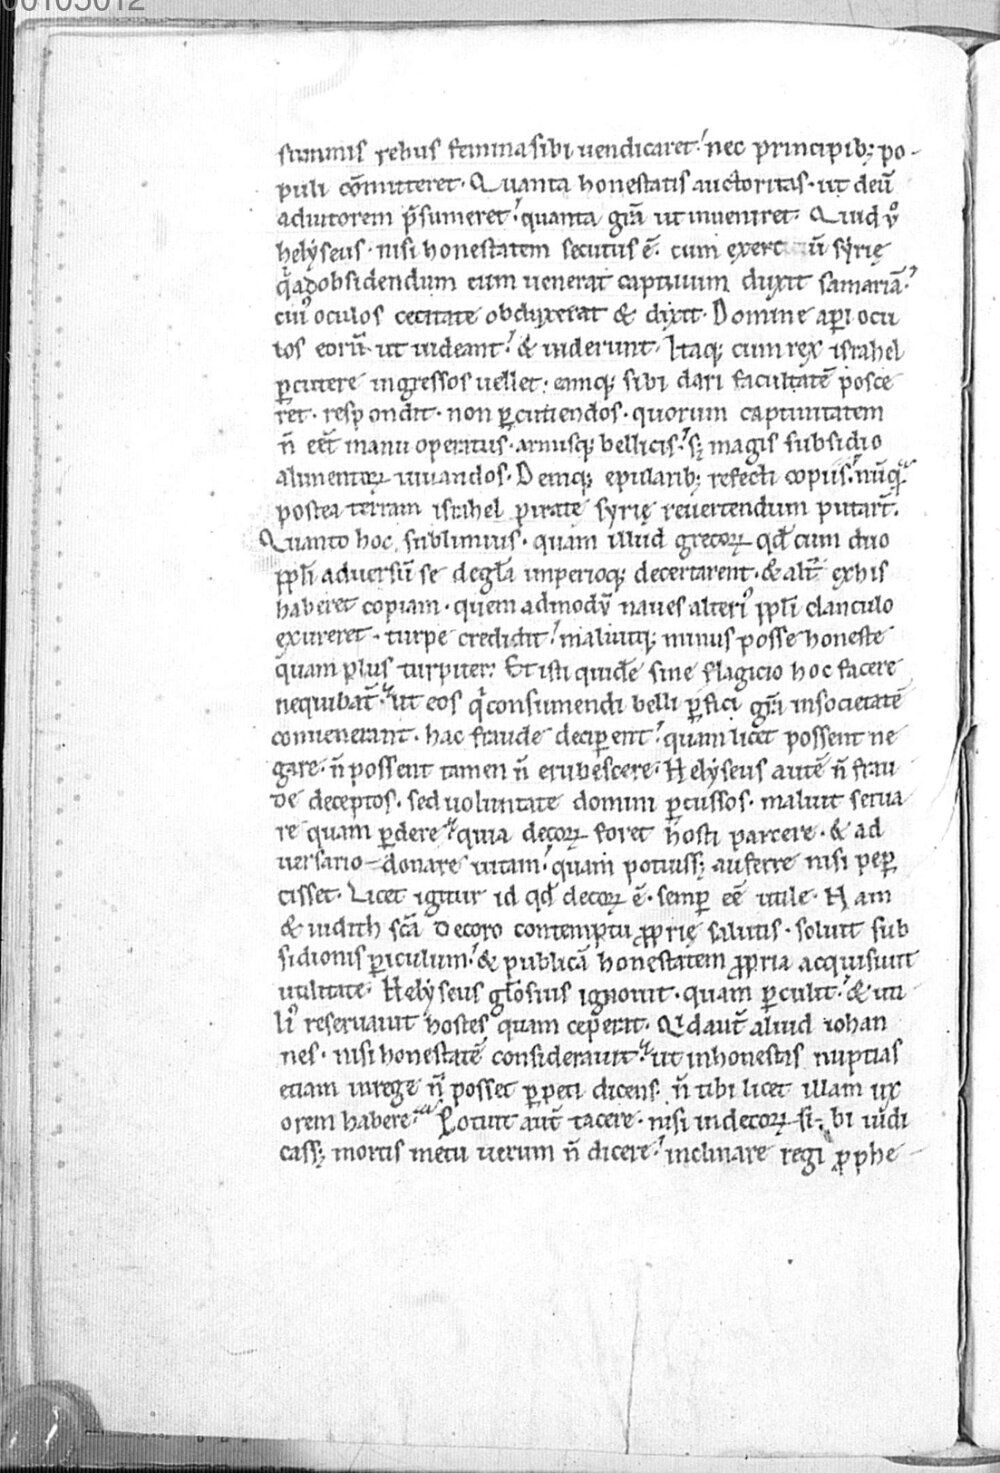 00105012
summis rebus femina sibi uendicaret.' nec principib; po-
puli cōmitteret. Quanta honestatis auctoritas. ut deū
adiutorem p̄sumeret.' quanta gr̄a ut inueniret. Quid ũo
helyseus. nisi honestatem secutus ē. cum exercitū syrię
q̄ ad obsidendum eum uenerat captiuum duxit samariā.'
cui' oculos cecitate obduxerat & dixit. Domine aperi ocu
los eorū ut uideant.' & uiderunt. Itaq; cum rex israhel
p̱cutere ingressos uellet. eamq; sibi dari facultatē posce
ret. respondit. non p̱cutiendos. quorum captiuitatem
ñ eēt manu operatus. armisq; bellicis.' s; magis subsidio
alimentoꝝ iuuandos. Deniq; epularib; refecti copiis. nūq̄
postea terram israhel piratę syrię reuertendum putar̄t.
Quanto hoc sublimius. quam illud grecoꝝ qd̄ cum duo
ppl̄i aduersū se de gl̄a imperioq; decertarent. & alt̄ ex his
haberet copiam. quem admodū naues alteri' ppl̄i clanculo
exureret. turpe credidit.' maluitq; minus posse honeste
quam plus turpiter. Et isti quidē sine flagicio hoc facere
nequibāt. ut eos q̄ consumendi belli p̱fici gr̄a in societatē
conuenerant. hac fraude deciperent.' quam licet possent ne
gare. ñ possent tamen ñ erubescere. Helyseus autē ñ frau
de deceptos. sed uoluntate domini p̱cussos. maluit serua
re quam p̱dere. quia decoꝝ foret hosti parcere. & ad
uersario donare uitam.' quam potuiss; auferre nisi pep̱
cisset. Licet igitur id qd̄ decoꝝ ē. semp̱ eē utile. Nam
& iudith sc̄a decoro contemptu ꝓprię salutis. soluit sub
sidionis p̱iculum.' & publicā honestatem ꝓpria acquisiuit
utilitate. Helyseus gl̄osius ignouit. quam p̱culit.' & uti
li' reseruauit hostes quam ceperat. Qd aut̄ aliud iohan
nes. nisi honestatē considerauit. ut inhonestas nuptias
etiam in rege ñ posset p̱peti dicens. ñ tibi licet illam ux
orem habere. Potuit aut̄ tacere. nisi indecoꝝ sibi iudi
cass; mortis metu uerum ñ dicere.' inclinare regi ꝓphe-